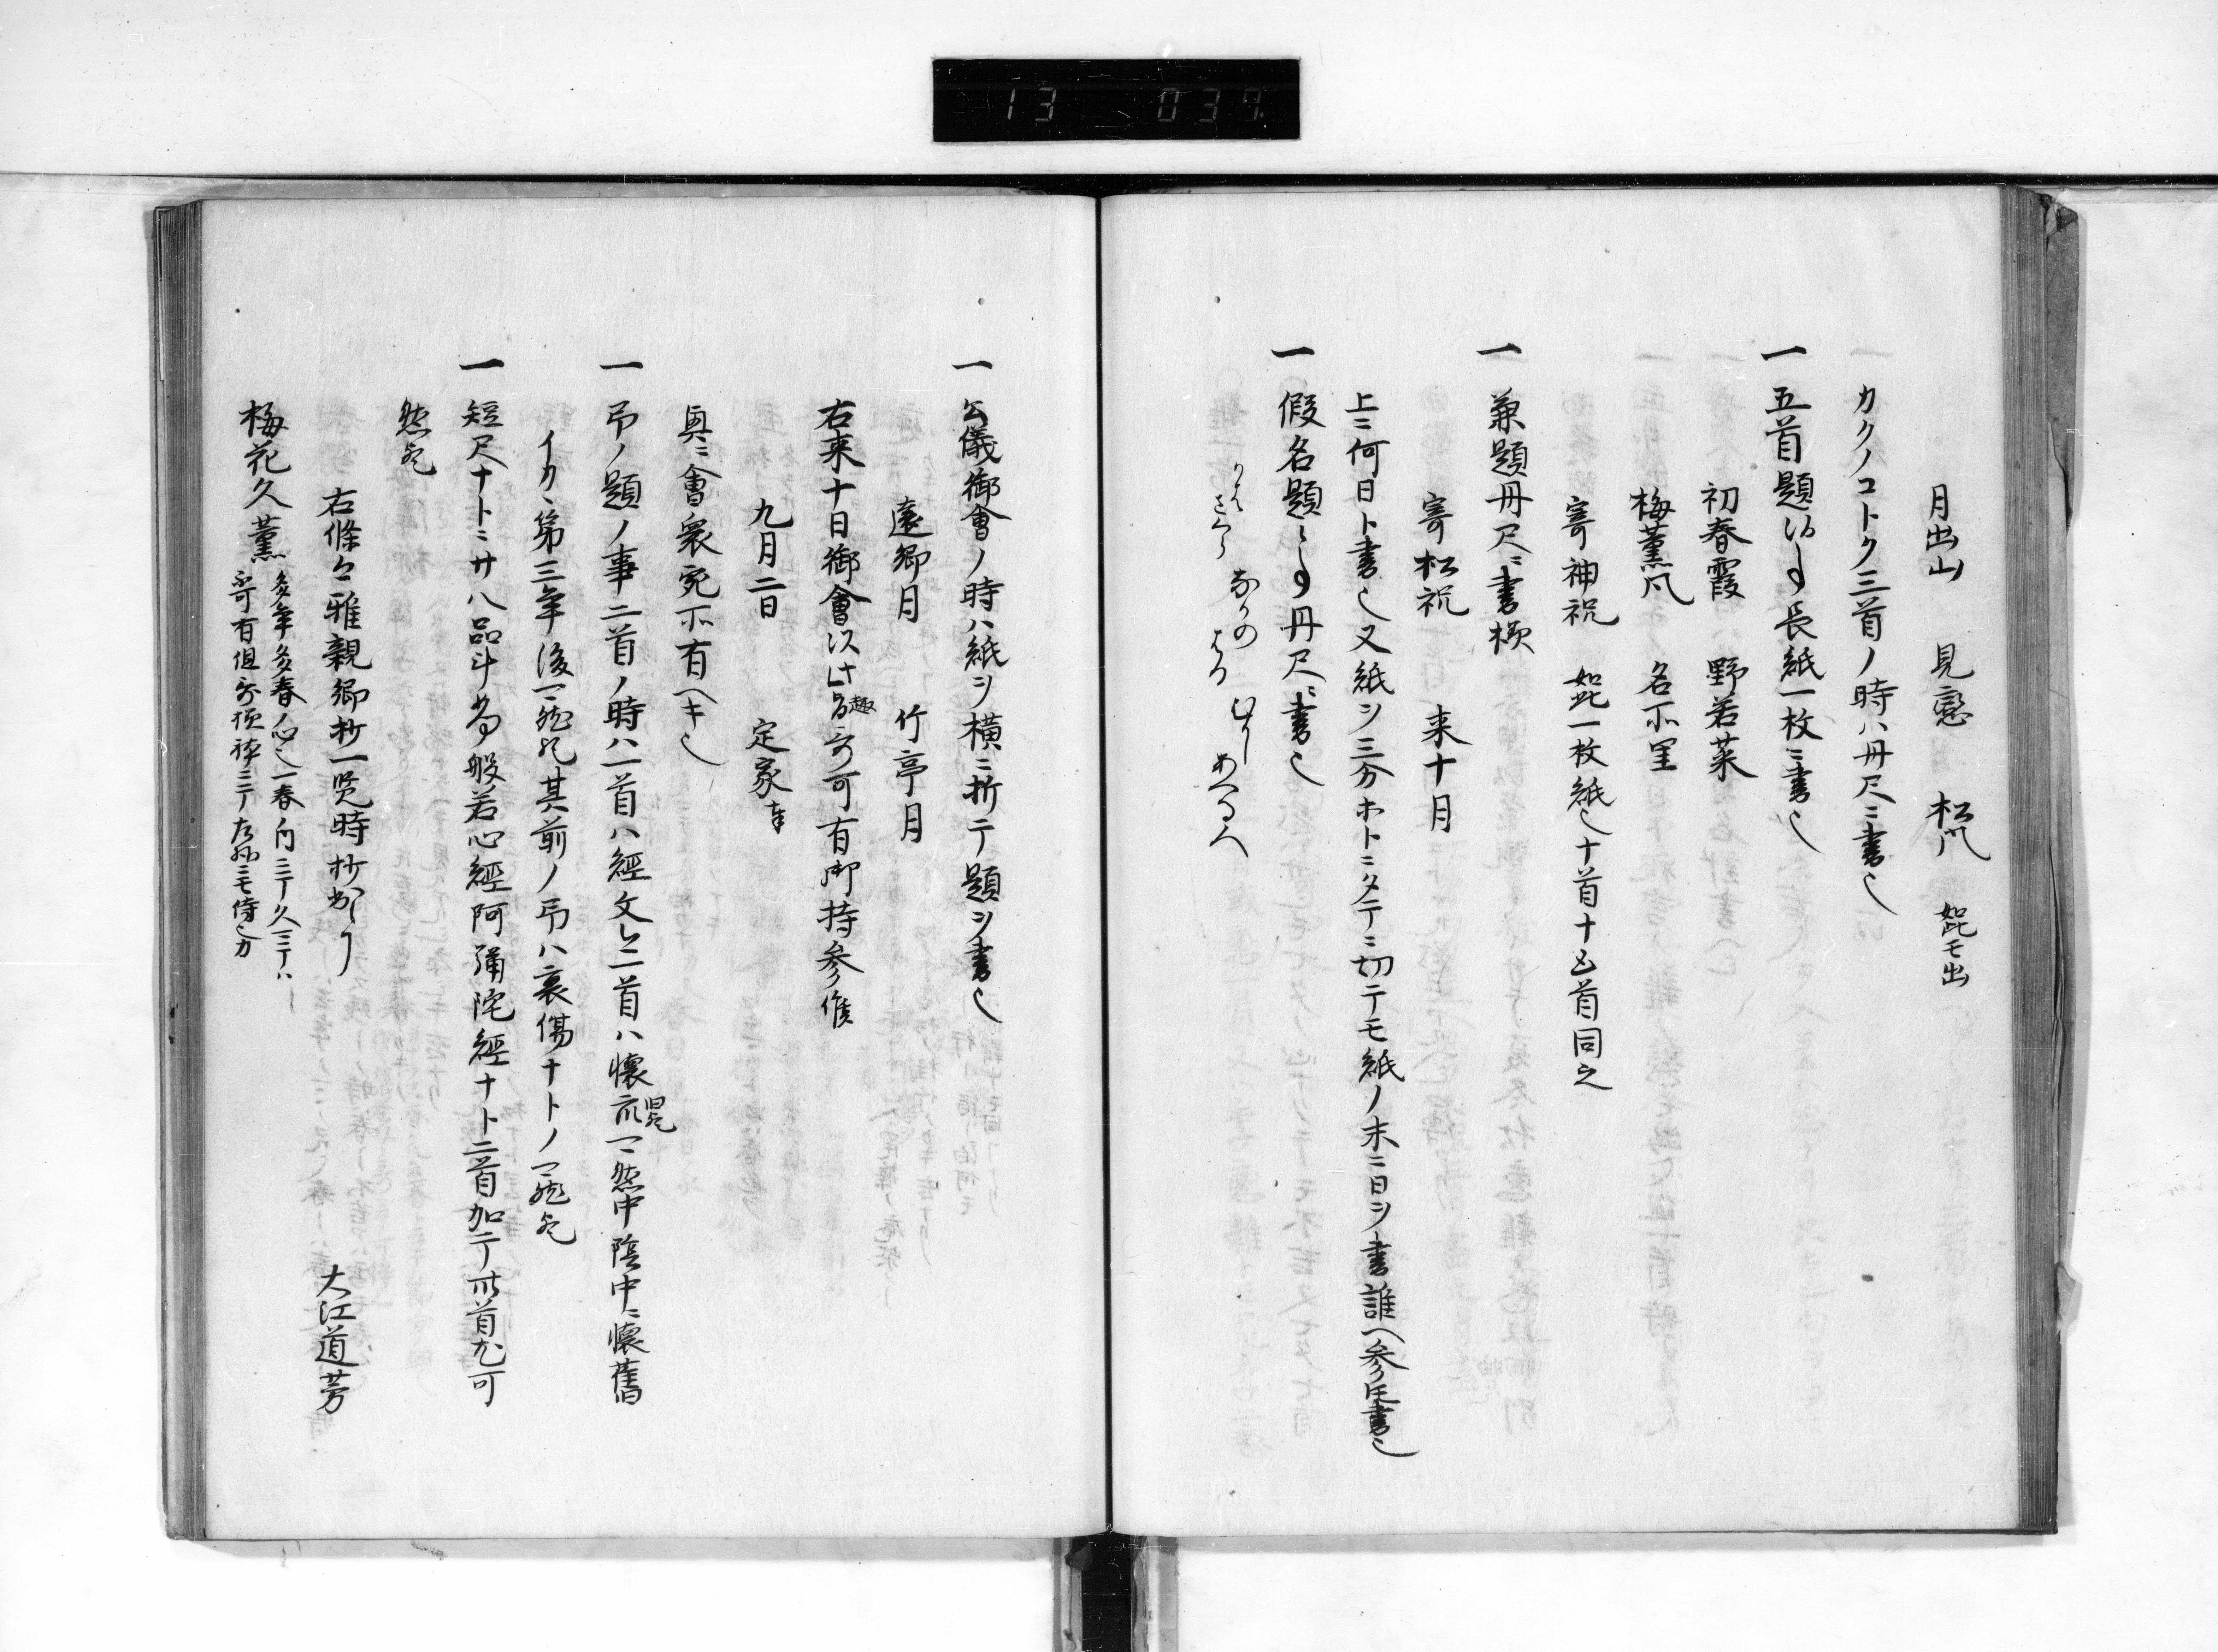 13 037
月出山　見恋　松風　如此モ出
カクノコトク三首ノ時ハ丹尺ニ書也
一 五首題ハ長紙一枚ニ書也
初春霞　野若菜
梅薫風　名所里
寄神祝　如此一枚紙也十首十五首同之
一 兼題丹尺ニ書様
寄松祝　来十月
上ニ何日ト書也又紙ヲ三分ホトニタテニ切テモ紙ノ末ニ日ヲ書誰ヘ参ト書也
一 假名題之事丹尺ニ書也
一 公儀御會ノ時ハ紙ヲ横ニ折テ題ヲ書也
遠郷月　竹亭月
右来十日御會以此題趣可有御持参候
九月二日　定家奉
奥ニ會衆宛所有ヘキ也
一 弔ノ題ノ事二首ノ時ハ一首ハ經文今一首ハ懐旧可然中陰中ニ懐舊
イカヽ第三年後可然其前ノ弔ハ哀傷ナトノ可然
一 短尺ナトニ廿八品般若心經阿彌陀經ナト二首加テ卅首尤可
然
右條々雅親卿抄一覧時抄出　大江道芳
梅花久薫 多年多春ノ心也一春ノ内ニテ久ニテハ